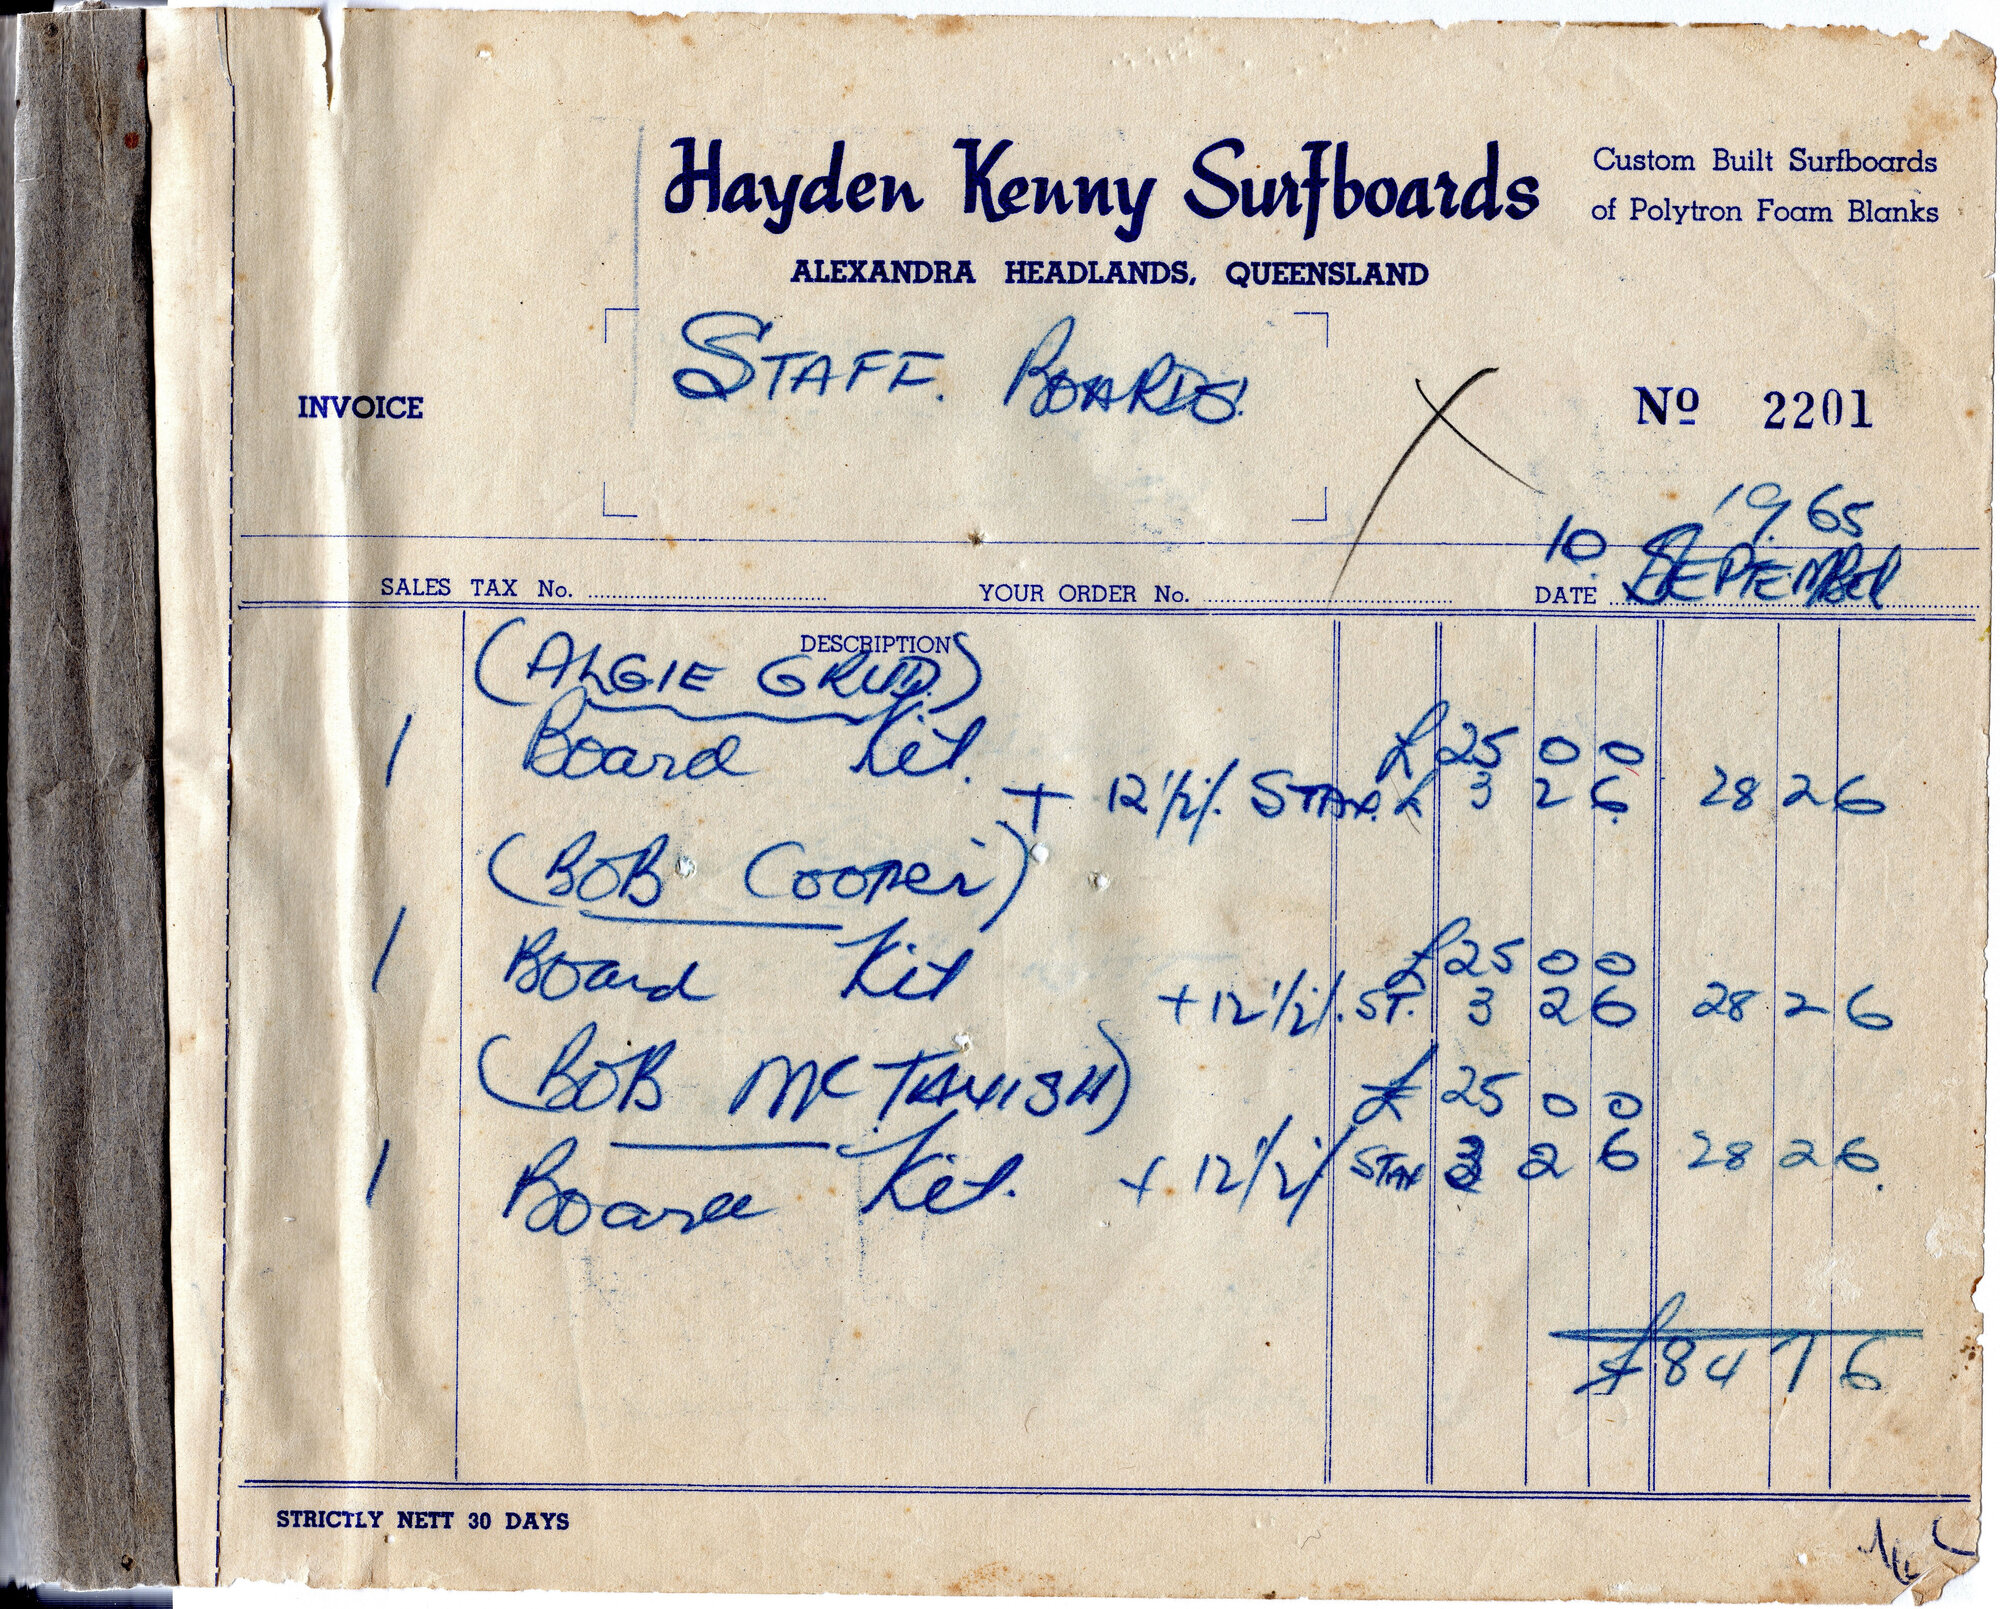 Hayden Kenny Surfboards
Custom Built Surfboards
of Polytron Foam Blanks
ALEXANDRA HEADLANDS, QUEENSLAND
STAFF. BOARDS.
INVOICE
No 2201
1965
10 SEPTEMBER
SALES TAX No. YOUR ORDER No. DATE
DESCRIPTION
(ALGIE GRUD)
1 Board Kit. £ 25 0 0
+ 12 1/2 % S TAX. £ 3 2 6 28 2 6
(BOB Cooper)
1 Board Kit £ 25 0 0
+ 12 1/2 %. ST. 3 2 6 28 2 6
(BOB MC TAVISH) £ 25 0 0
1 Board Kit. + 12 1/2 % S TAX 3 2 6 28 2 6.
£ 84 7 6
STRICTLY NETT 30 DAYS